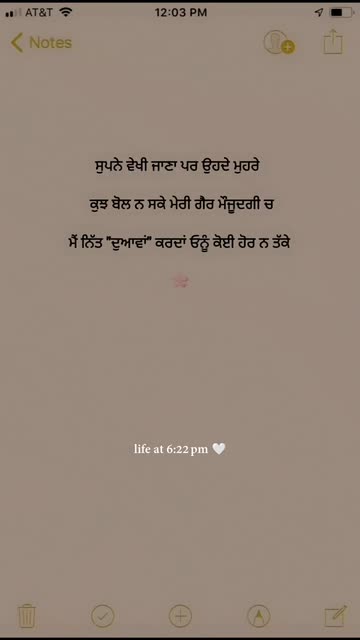 AT&T 12:03 PM
Notes
ਸੁਪਨੇ ਵੇਖੀ ਜਾਣਾ ਪਰ ਉਹਦੇ ਮੁਹਰੇ
ਕੁਝ ਬੋਲ ਨ ਸਕੇ ਮੇਰੀ ਗੈਰ ਮੌਜੂਦਗੀ ਚ
ਮੈਂ ਨਿੱਤ "ਦੁਆਵਾਂ" ਕਰਦਾਂ ਓਨੂੰ ਕੋਈ ਹੋਰ ਨ ਤੱਕੇ
life at 6:22 pm 🤍